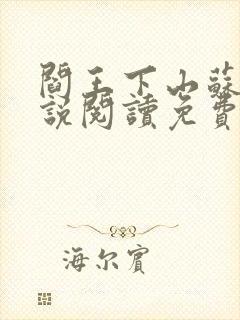 閻王下山蘇
說閱讀免費
海尔賓